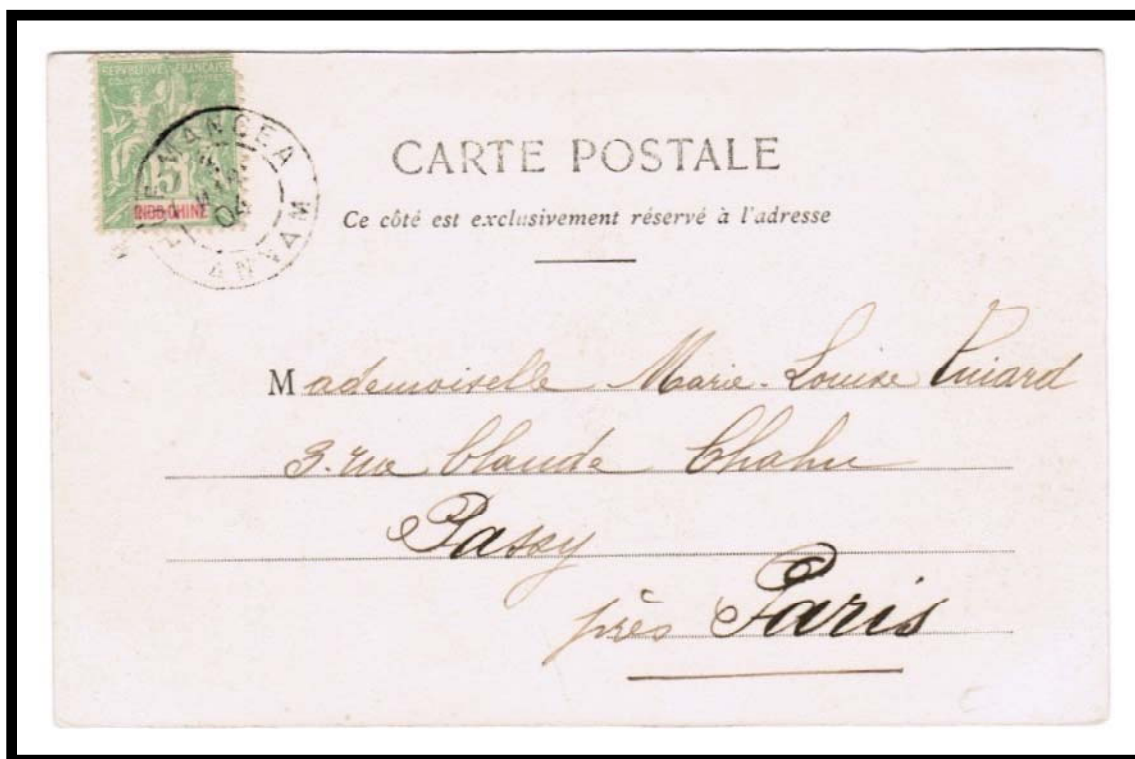 REPUBLIQUE FRANÇAISE
COLONIES POSTES
5
INDO-CHINE
ANNAM
04
CARTE POSTALE
Ce côté est exclusivement réservé à l'adresse
Mademoiselle Marie-Louise
3. rue Claude Chahu
Passy
près Paris